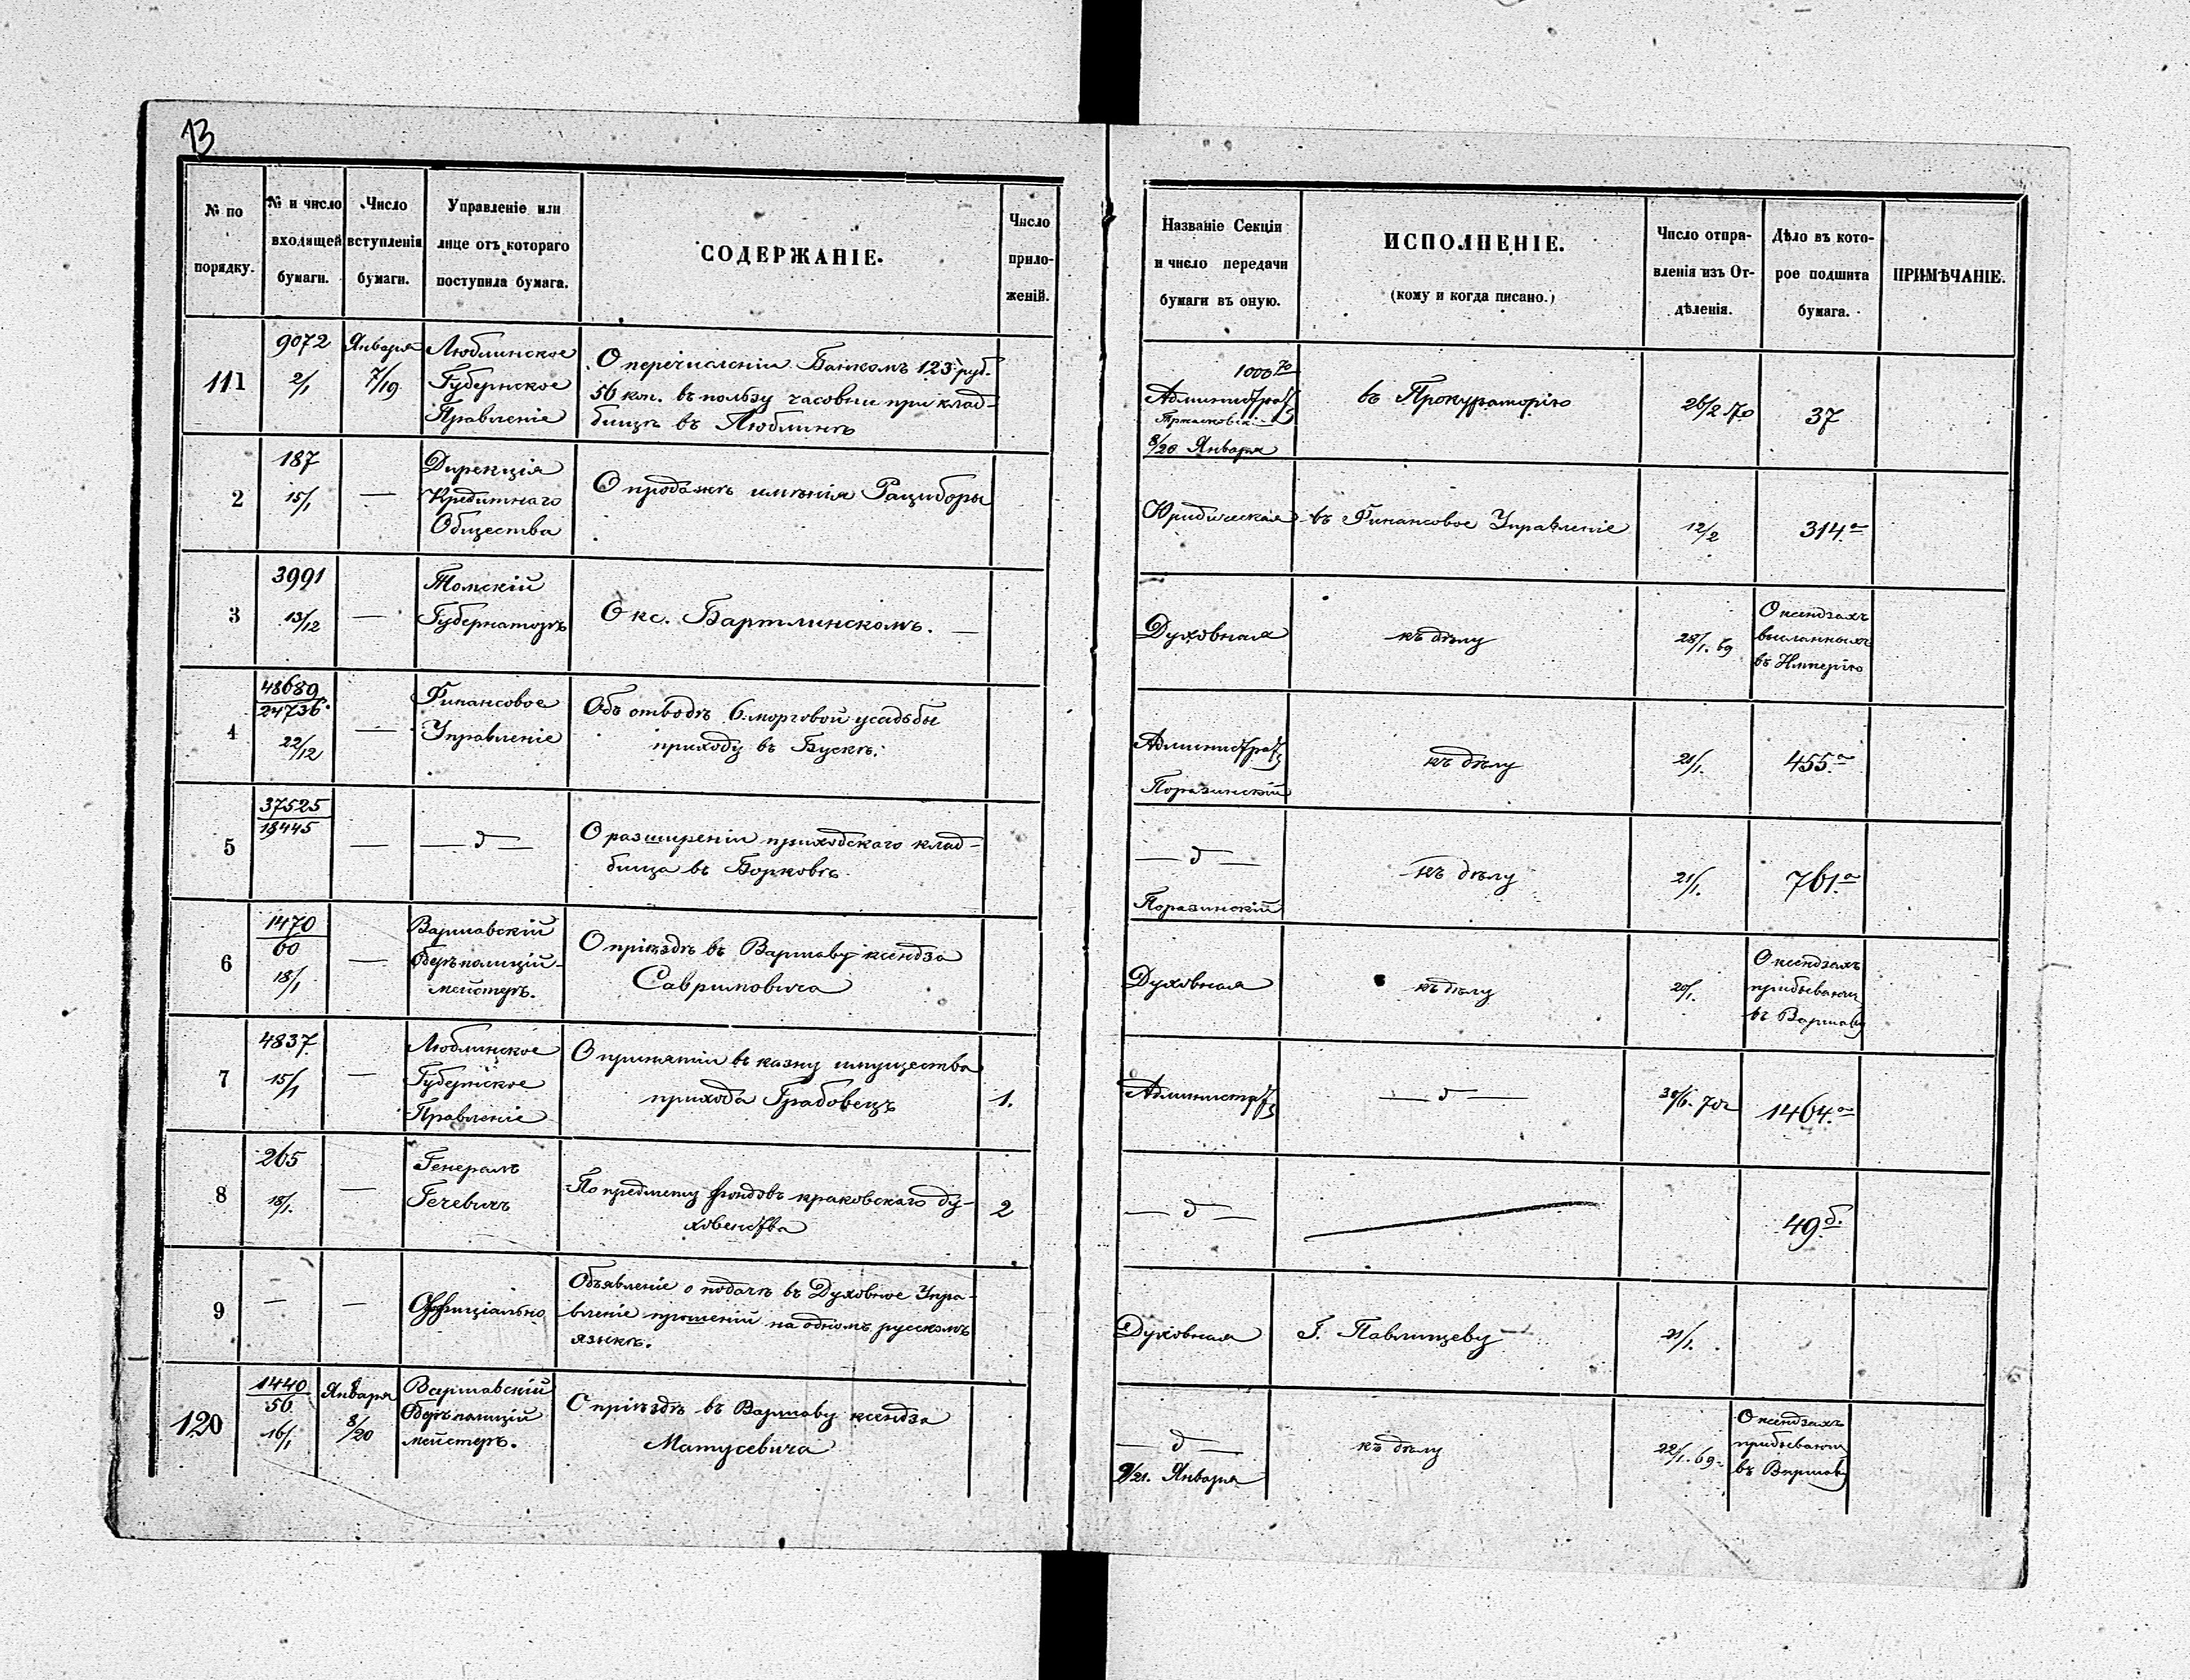 13
№ по порядку.
№ и число входящей бумаги.
Число вступленія бумаги.
Управленіе или лице отъ котораго поступила бумага.
СОДЕРЖАНІЕ.
Число приложеній.
Названіе Секціи и число передачи бумаги въ оную.
ИСПОЛНЕНІЕ.
(кому и когда писано.)
Число отпра-
вленія изъ От-
дѣленія.
Дѣло въ кото-
рое подшита
бумага.
ПРИМѢЧАНІЕ.
111
9072
2/1
Января
7/19
Люблинское
Губернское
Правленіе
О перечисленіи Банкомъ 123 руб.
56 коп. въ пользу часовни при клад-
бищѣ въ Люблинѣ
1000 70
Администрат
8/20 Января
въ Прокураторію
26/2 70
37
2
187
15/1
—
Дирекція
Кредитнаго
Общества
О продажѣ имѣнія Рациборы
Юридическая
въ Финансовое Управленіе
12/2
314.а
3
3991
13/12
—
Томскій
Губернаторъ
О кс. Бартлинскомъ. —
Духовная
къ дѣлу
28/1. 69
О ксендзахъ
высланныхъ
въ Имперію
4
48689
24736
22/12
—
Финансовое
Управленіе
Объ отводѣ 6. морговой усадьбы
приходу въ Бускѣ.
Администрат
Поразинскій
къ дѣлу
21/1.
455.а
5
37525
18445
—
— д —
О разширеніи приходскаго клад-
бища въ Борковѣ
— д —
Поразинскій
къ дѣлу
21/1.
761.а
6
1470
60
18/1
—
Варшавскій
Оберъ полицій-
мейстеръ.
О пріѣздѣ въ Варшаву ксендза
Савримовича
Духовная
къ дѣлу
20/1.
О ксендзахъ
прибывающ
въ Варшаву
7
4837
15/1
—
Люблинское
Губернское
Правленіе
О принятіи въ казну имущества
прихода Грабовецъ
1.
Администр
— д —
30/6. 70г
1464.а
8
265
18/1.
—
Генералъ
Гечевичъ
По предмету фондовъ краковскаго ду-
ховенства
2
— д —
49.б.
9
—
—
Оффиціально
Объявленіе о подачѣ въ Духовное Упра-
вленіе прошеній на одномъ русскомъ
языкѣ.
Духовная
Г. Павлищеву
21/1.
120
1440
56
16/1
Января
8/20
Варшавскій
Оберъ полицій
мейстеръ.
О пріѣздѣ въ Варшаву ксендза
Матусевича
— д —
9/21. Января
къ дѣлу
22/1. 69
О ксендзахъ
прибывающ
въ Варшаву